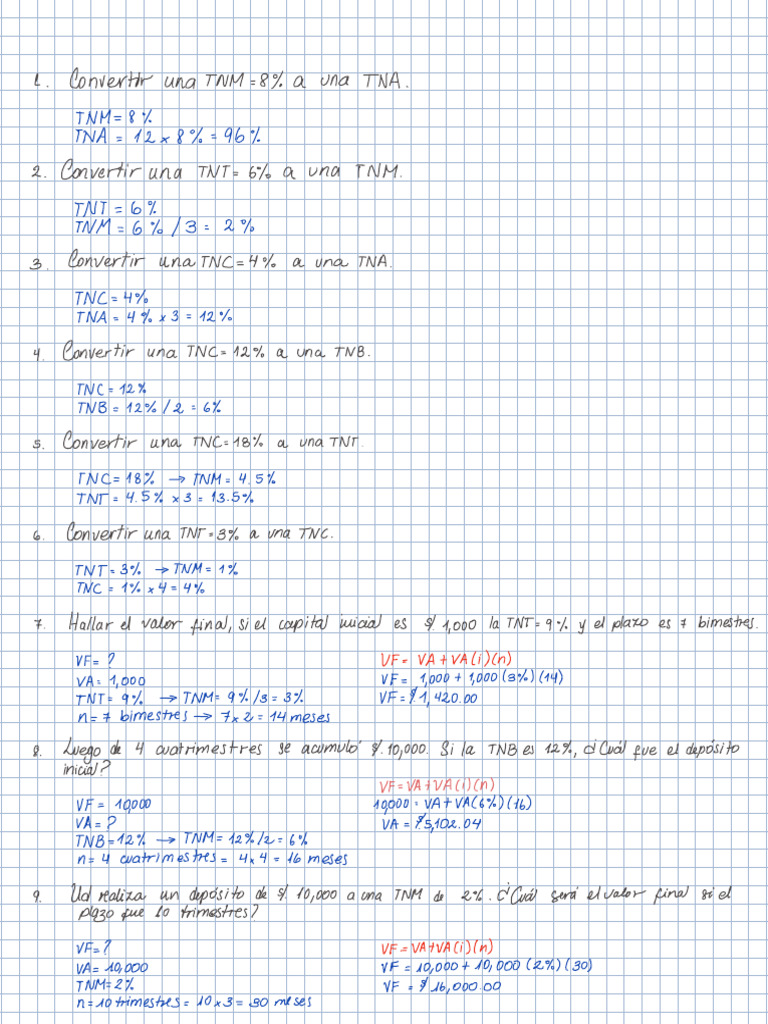 1. Convertir una TNM = 8% a una TNA.
TNM = 8%
TNA = 12 x 8% = 96%
2. Convertir una TNT = 6% a una TNM.
TNT = 6%
TNM = 6% / 3 = 2%
3. Convertir una TNC = 4% a una TNA.
TNC = 4%
TNA = 4% x 3 = 12%
4. Convertir una TNC = 12% a una TNB.
TNC = 12%
TNB = 12% / 2 = 6%
5. Convertir una TNC = 18% a una TNT.
TNC = 18% → TNM = 4.5%
TNT = 4.5% x 3 = 13.5%
6. Convertir una TNT = 3% a una TNC.
TNT = 3% → TNM = 1%
TNC = 1% x 4 = 4%
7. Hallar el valor final, si el capital inicial es S/. 1,000 la TNT = 9% y el plazo es 7 bimestres.
VF = ?
VA = 1,000
TNT = 9% → TNM = 9% /3 = 3%
n = 7 bimestres → 7 x 2 = 14 meses
VF = VA + VA (i) (n)
VF = 1,000 + 1,000 (3%) (14)
VF = S/. 1,420.00
8. Luego de 4 cuatrimestres se acumuló S/. 10,000. Si la TNB es 12%, ¿Cuál fue el depósito
inicial?
VF = 10,000
VA = ?
TNB = 12% → TNM = 12% /2 = 6%
n = 4 cuatrimestres = 4 x 4 = 16 meses
VF = VA + VA (i) (n)
10,000 = VA + VA (6%) (16)
VA = S/ 5,102.04
9. Ud realiza un depósito de S/. 10,000 a una TNM de 2%. ¿Cuál será el valor final si el
plazo fue 10 trimestres?
VF = ?
VA = 10,000
TNM = 2%
n = 10 trimestres = 10 x 3 = 30 meses
VF = VA + VA (i) (n)
VF = 10,000 + 10,000 (2%) (30)
VF = S/ 16,000.00